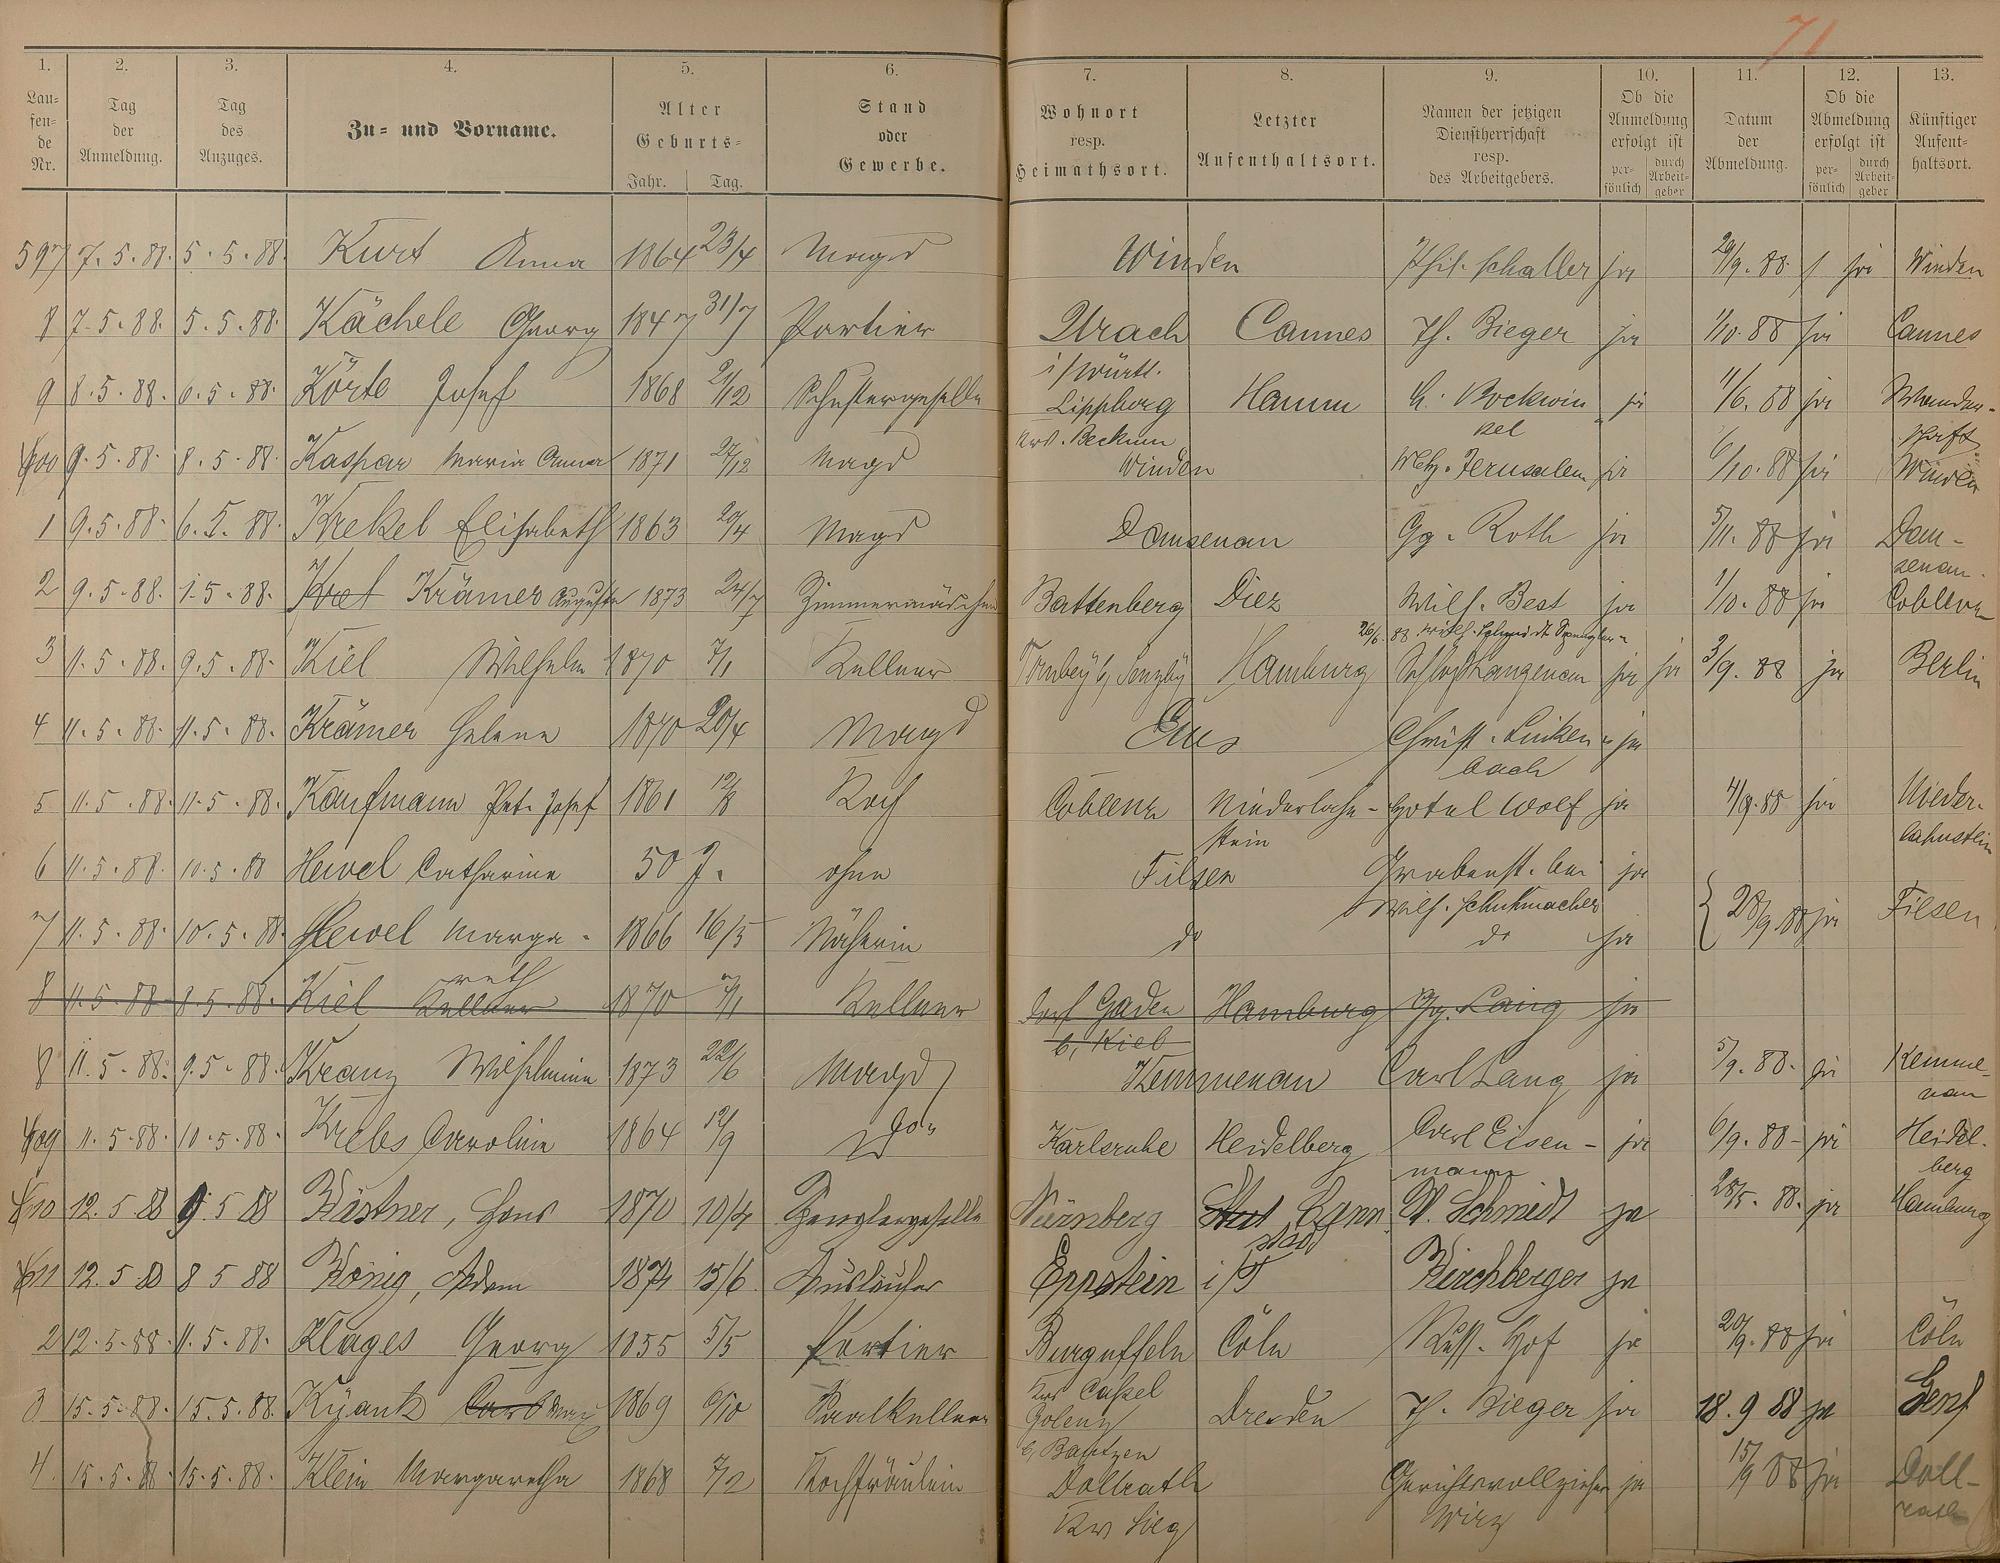 71
1. 2. 3. 4. 5. 6. 7. 8. 9. 10. 11. 12. 13.
Lau=fen=de Nr. Tag der Anmeldung. Tag des Anzuges. Zu= und Vorname. Alter Geburts= Jahr. Tag. Stand oder Gewerbe. Wohnort resp. Heimathsort. Letzter Aufenthaltsort. Namen der jetzigen Dienstherrschaft resp. des Arbeitgebers. Ob die Anmeldung erfolgt ist per=sönlich durch Arbeit=geber Datum der Abmeldung. Ob die Abmeldung erfolgt ist per=sönlich durch Arbeit=geber Künftiger Aufent=haltsort.
597 7. 5. 88. 5. 5. 88. Kurt Anna 1864 23/4 Magd Winden Phil. Schaller ja 29/9. 88. ja Winden
8 7. 5. 88. 5. 5. 88. Kächele Georg 1847 31/7 Portier Urach Cannes Th. Bieger ja 1/10. 88 ja Cannes
i/Württ.
9 8. 5. 88. 6. 5. 88. Körte Josef 1868 2/12 Schustergeselle Lippborg Hamm H. Bockwin ja 11/6. 88 ja Wander-
Krs. Beckum kel schaft
600 9. 5. 88. 8. 5. 88. Kaspar Maria Anna 1871 27/12 Magd Winden Metz. Jerusalem ja 6/10. 88 ja Winden
1 9. 5. 88. 6. 5. 88. Krekel Elisabeth 1863 20/4 Magd Dausenau Gg. Roth ja 5/11. 88 ja Dau-
senau.
2 9. 5. 88. 1. 5. 88. Kret Krämer Auguste 1873 24/7 Zimmermädchen Battenberg Diez Wilh. Best ja 1/10. 88 ja Coblenz
26/6. 88 Wilh. Schmidt Spengler
3 11. 5. 88. 9. 5. 88. Kiel Wilhelm 1870 7/1 Kellner Hamburg Schloß Langenau ja ja 3/9. 88 ja Berlin
4 11. 5. 88. 11. 5. 88. Krämer Helene 1870 20/4 Magd Ems Christ. Linken- ja
bach
5 11. 5. 88. 11. 5. 88. Kaufmann Pet. Josef 1861 12/8 Koch Coblenz Niederlahn- Hotel Wolf ja 4/9. 88 ja Nieder-
stein lahnstein
6 11. 5. 88. 10. 5. 88 Hewel Catharine 50 J. ohne Filsen Grabenst. bei ja
Wilh. Schuhmacher
7 11. 5. 88. 10. 5. 88. Hewel Marga- 1866 16/5 Näherin do do ja 28/9. 88 ja Filsen
reth
8 11. 5. 88 8. 5. 88. Kiel Kellner 1870 7/1 Kellner Dorf Gaden Hamburg Gg. Lang ja
b, Kiel
8 11. 5. 88. 9. 5. 88. Kranz Wilhelmine 1873 22/6 Magd Kemmenau Carl Lang ja 5/9. 88. ja Kemme-
nau
609 11. 5. 88. 10. 5. 88. Krebs Caroline 1864 12/9 do Karlsruhe Heidelberg Carl Eisen- ja 6/9. 88 ja Heidel-
mann berg
610 12. 5 88 9. 5 88 Kästner, Hans 1870 10/4 Spenglergeselle Nürnberg Stut Cann W. Schmidt ja 28/5. 88. ja Hamburg
stadt
611 12. 5 88 8 5 88 König, Adam 1874 15/6 Ausläufer Eppstein i/T Kirchberger ja
2 12. 5. 88 11. 5. 88. Klages Georg 1855 5/5 Portier Burguffeln Cöln Russ. Hof ja 20/9. 88 ja Cöln
Krs Caßel
3 15. 5. 88. 15. 5. 88. Kÿank Carl Max 1869 6/10 Saalkellner Golenz Dresden Th. Bieger ja 18. 9 88 ja Genf
b, Bautzen
4. 15. 5. 88. 15. 5. 88. Klein Margaretha 1868 7/2 Kochfräulein Dollrath Gerichtsvollzieher ja 15/9 88 ja Doll-
Krs Sieg Wirz rath